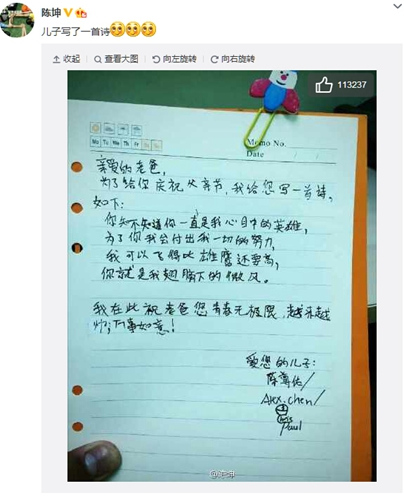 陈坤
儿子写了一首诗
收起 查看大图 向左旋转 向右旋转
113237
Memo No.
Mo Tu We Th Fr Sa Su
Date
亲爱的老爸,
为了给你庆祝父亲节,我给您写一首诗,
如下:
你知不知道你一直是我心目中的英雄,
为了你我会付出我一切的努力,
我可以飞得比雄鹰还要高,
你就是我翅膀下的微风。
我在此祝老爸您青春无极限,越来越
帅,万事如意!
爱您的儿子:
陈尊佑/
Alex.chen/
Paul
@陈坤